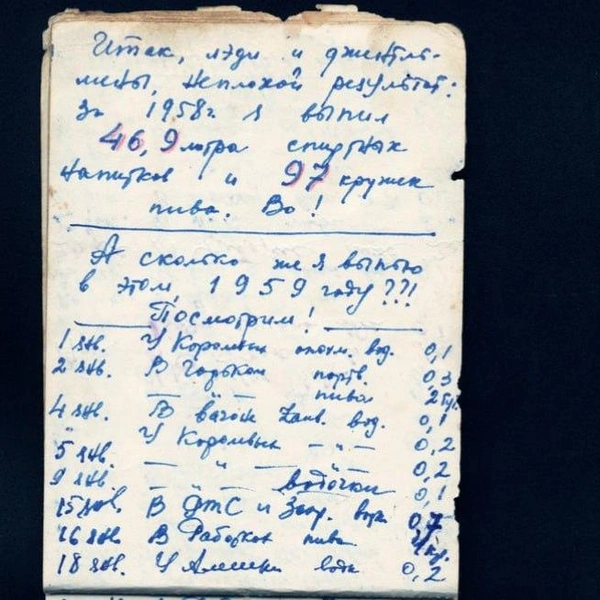 Итак, лэди и джентль-
мены, неплохой результат:
за 1958г. я выпил
46,9 литра спиртных
напитков и 97 кружек
пива. Во!
А сколько же я выпью
в этом, 1959 году ??!
Посмотрим!
1 янв. У Коровьих опохм. вод. 0,1
2 янв. В Горьком портв. 0,3
" " пива 2 кр.
4 янв. В вагоне вод. 0,1
" У Коровьих — " — 0,2
5 янв. — " — — " — 0,2
9 янв. — " — водочки 0,1
15 янв. В ДТС и вод. 0,7
16 янв. В пива 4 кр.
18 янв. У Алешки водк 0,2